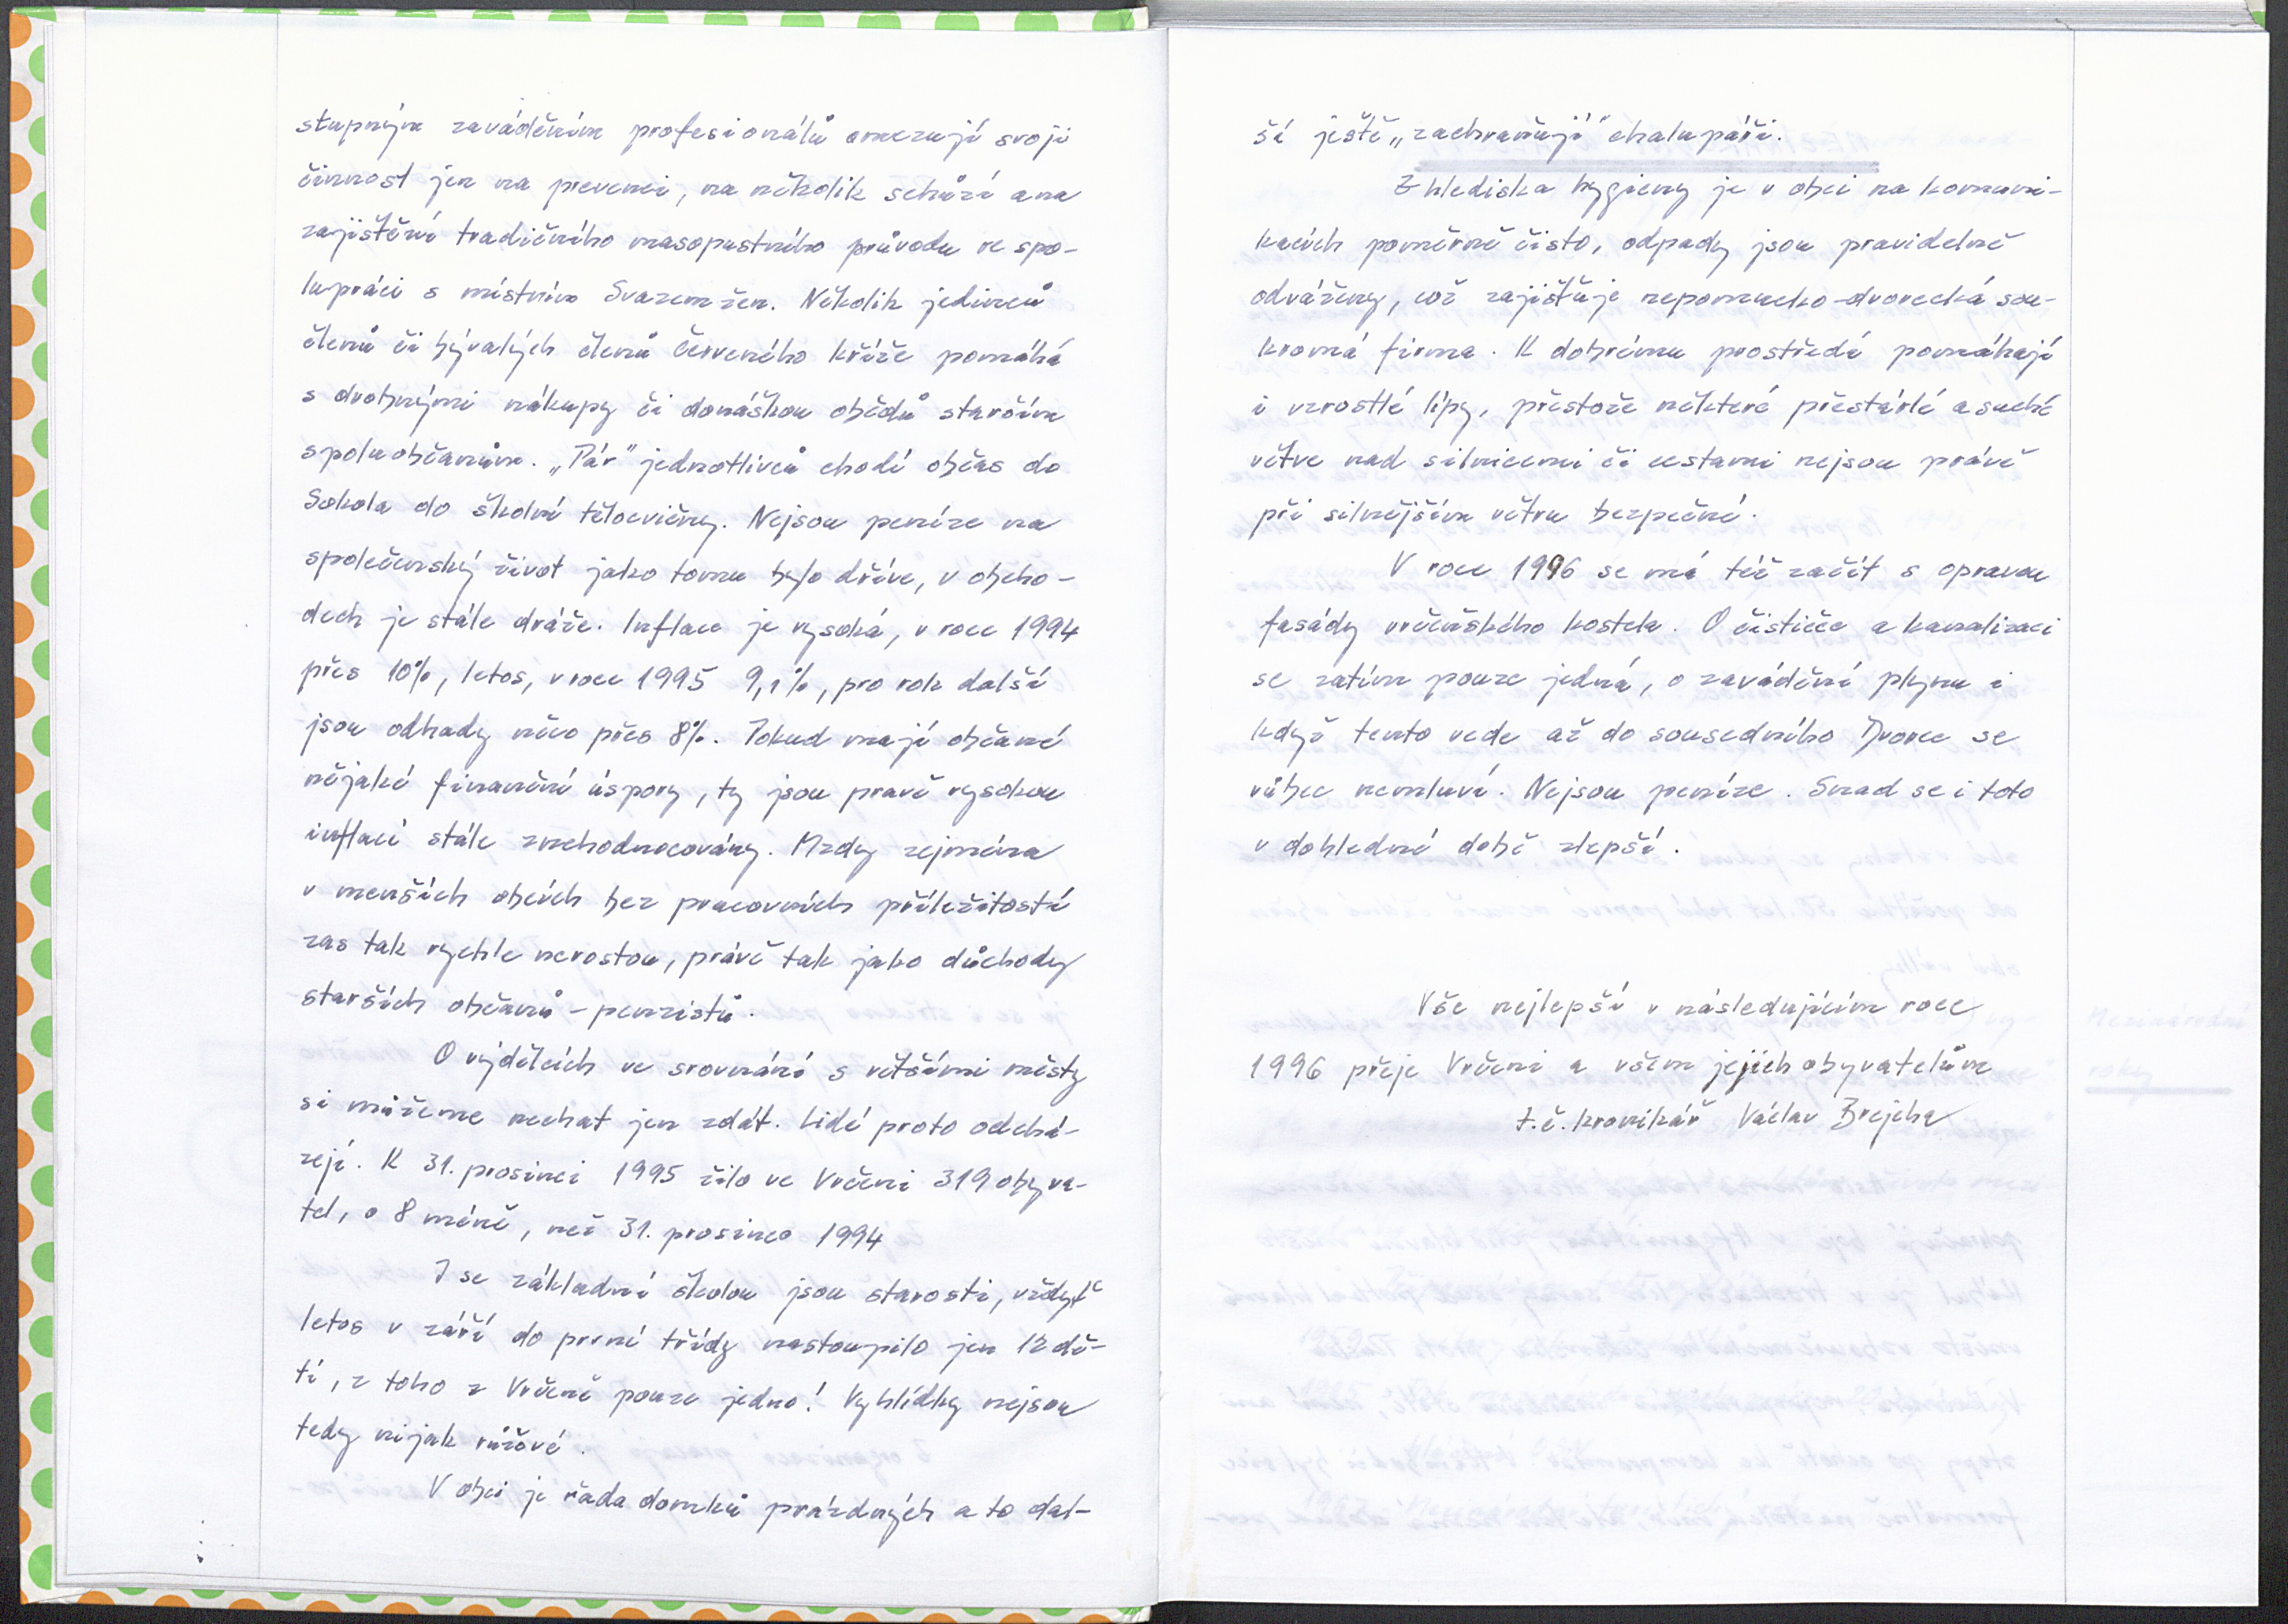 stupným zaváděním profesionálů omezují svoji
činnost jen na prevenci, na několik schůzí a na
zajištění tradičního masopustního průvodu ve spo-
lupráci s místním Svazem žen. Několik jedinců
členů či bývalých členů Červeného kříže pomáhá
s drobnými nákupy či donáškou obědů starším
spoluobčanům. „Pár" jednotlivců chodí občas do
Sokola do školní tělocvičny. Nejsou peníze na
společenský život jako tomu bylo dříve, v obcho-
dech je stále dráže. Inflace je vysoká, v roce 1994
přes 10%, letos, v roce 1995 9,1%, pro rok další
jsou odhady něco přes 8%. Pokud mají občané
nějaké finanční úspory, ty jsou pravě vysokou
inflací stále znehodnocovány. Mzdy zejména
v menších obcích bez pracovních příležitostí
zas tak rychle nerostou, právě tak jako důchody
starších občanů - penzistů.
O výdělcích ve srovnání s většími městy
si můžeme nechat jen zdát. Lidé proto odchá-
zejí. K 31. prosinci 1995 žilo ve Vrčeni 319 obyva-
tel, o 8 méně, než 31. prosince 1994
I se základní školou jsou starosti, vždyť
letos v září do první třídy nastoupilo jen 12 dě-
tí, z toho z Vrčeně pouze jedno! Vyhlídky nejsou
tedy nijak růžové.
V obci je řada domků prázdných a to dal-
ší ještě „zachraňují" chalupáři.
Z hlediska hygieny je v obci na komuni-
kacích poměrně čisto, odpady jsou pravidelně
odváženy, což zajišťuje nepomucko-dvorecká sou-
kromá firma. K dobrému prostředí pomáhají
i vzrostlé lípy, přestože některé přestárlé a suché
větve nad silnicemi či cestami nejsou právě
při silnějším větru bezpečné.
V roce 1996 se má též začít s opravou
fasády vrčeňského kostela. O čističce a kanalizaci
se zatím pouze jedná, o zavádění plynu i
když tento vede až do sousedního Dvorce se
vůbec nemluví. Nejsou peníze. Snad se i toto
v dohledné době zlepší.
Vše nejlepší v následujícím roce
1996 přeje Vrčeni a všem jejich obyvatelům
t.č. kronikář Václav Brejcha